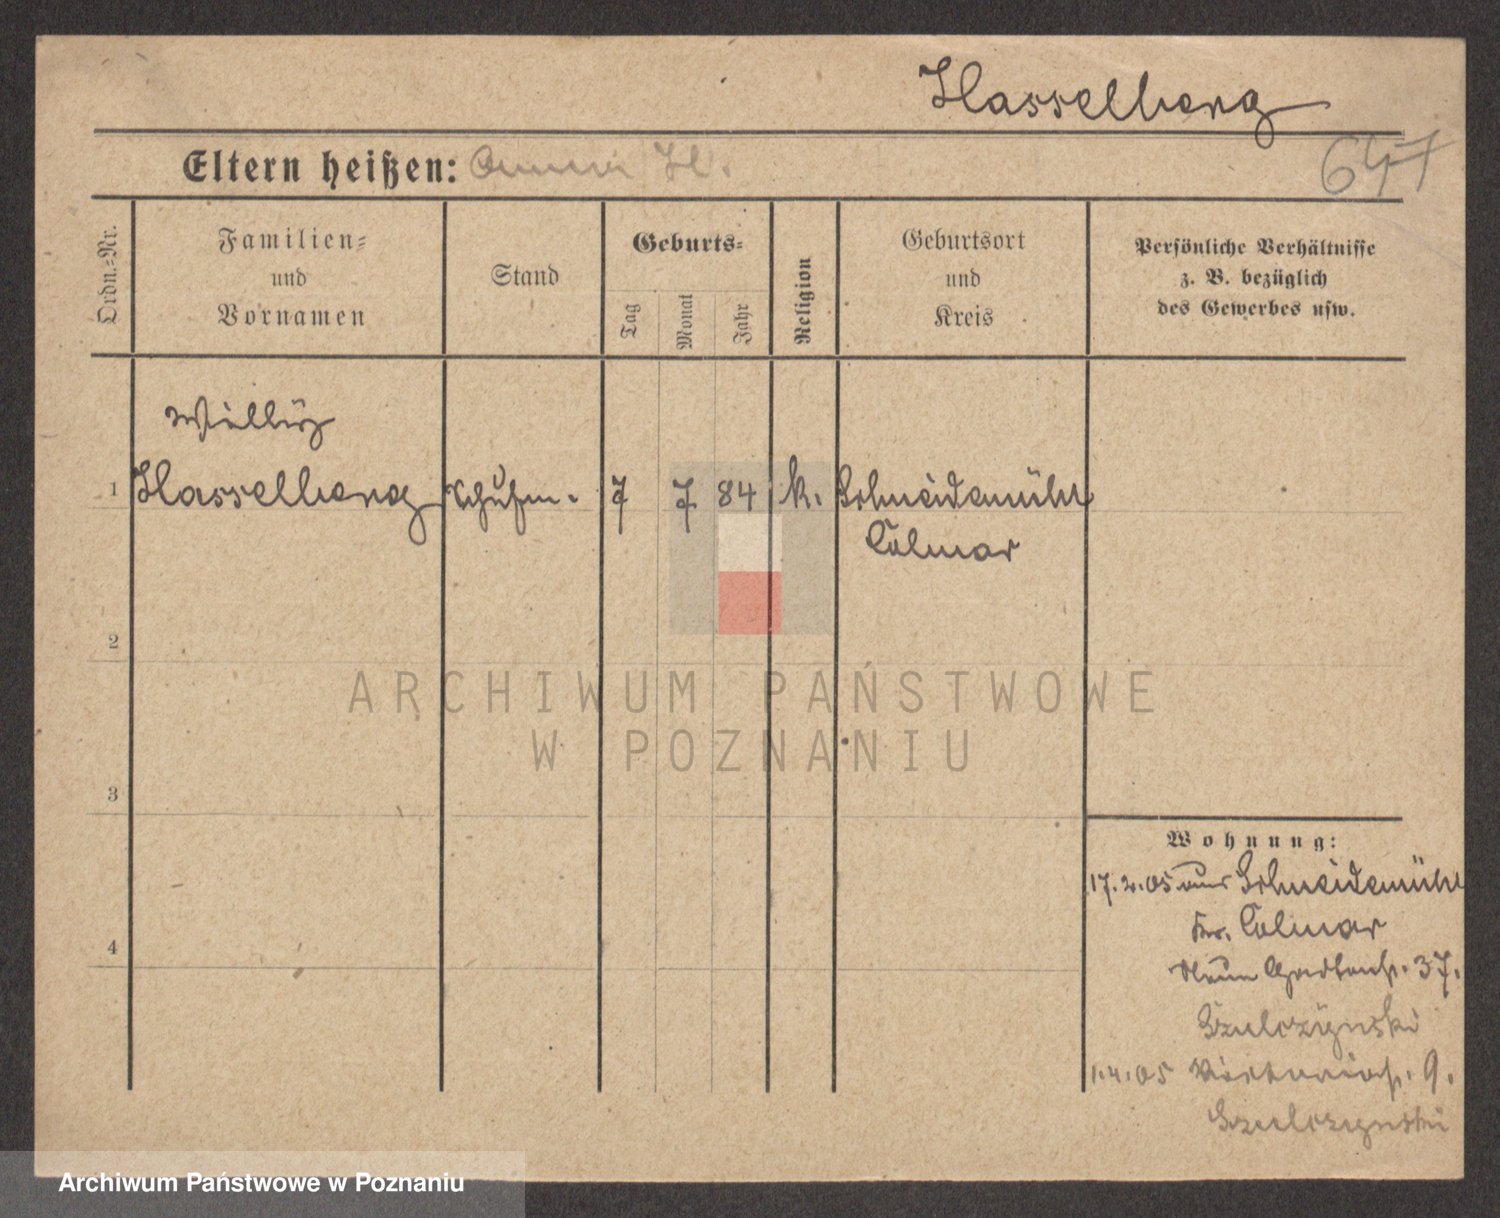 Hasselberg
Eltern heißen: Anna H.
647
Ordn.-Nr.
Familien-
und
Vornamen
Stand
Geburts-
Tag
Monat
Jahr
Religion
Geburtsort
und
Kreis
Persönliche Verhältnisse
z. B. bezüglich
des Gewerbes usw.
Willy
1 Hasselberg 7 7 84 k. Schneidemühl
Colmar
2
3
4
Wohnung:
17.2.05 aus Schneidemühl
Kr. Colmar
Neue Gartenstr. 37.
Szulczynski
1.4.05 Victoriastr. 9.
Szulczynski
ARCHIWUM PAŃSTWOWE
W POZNANIU
Archiwum Państwowe w Poznaniu